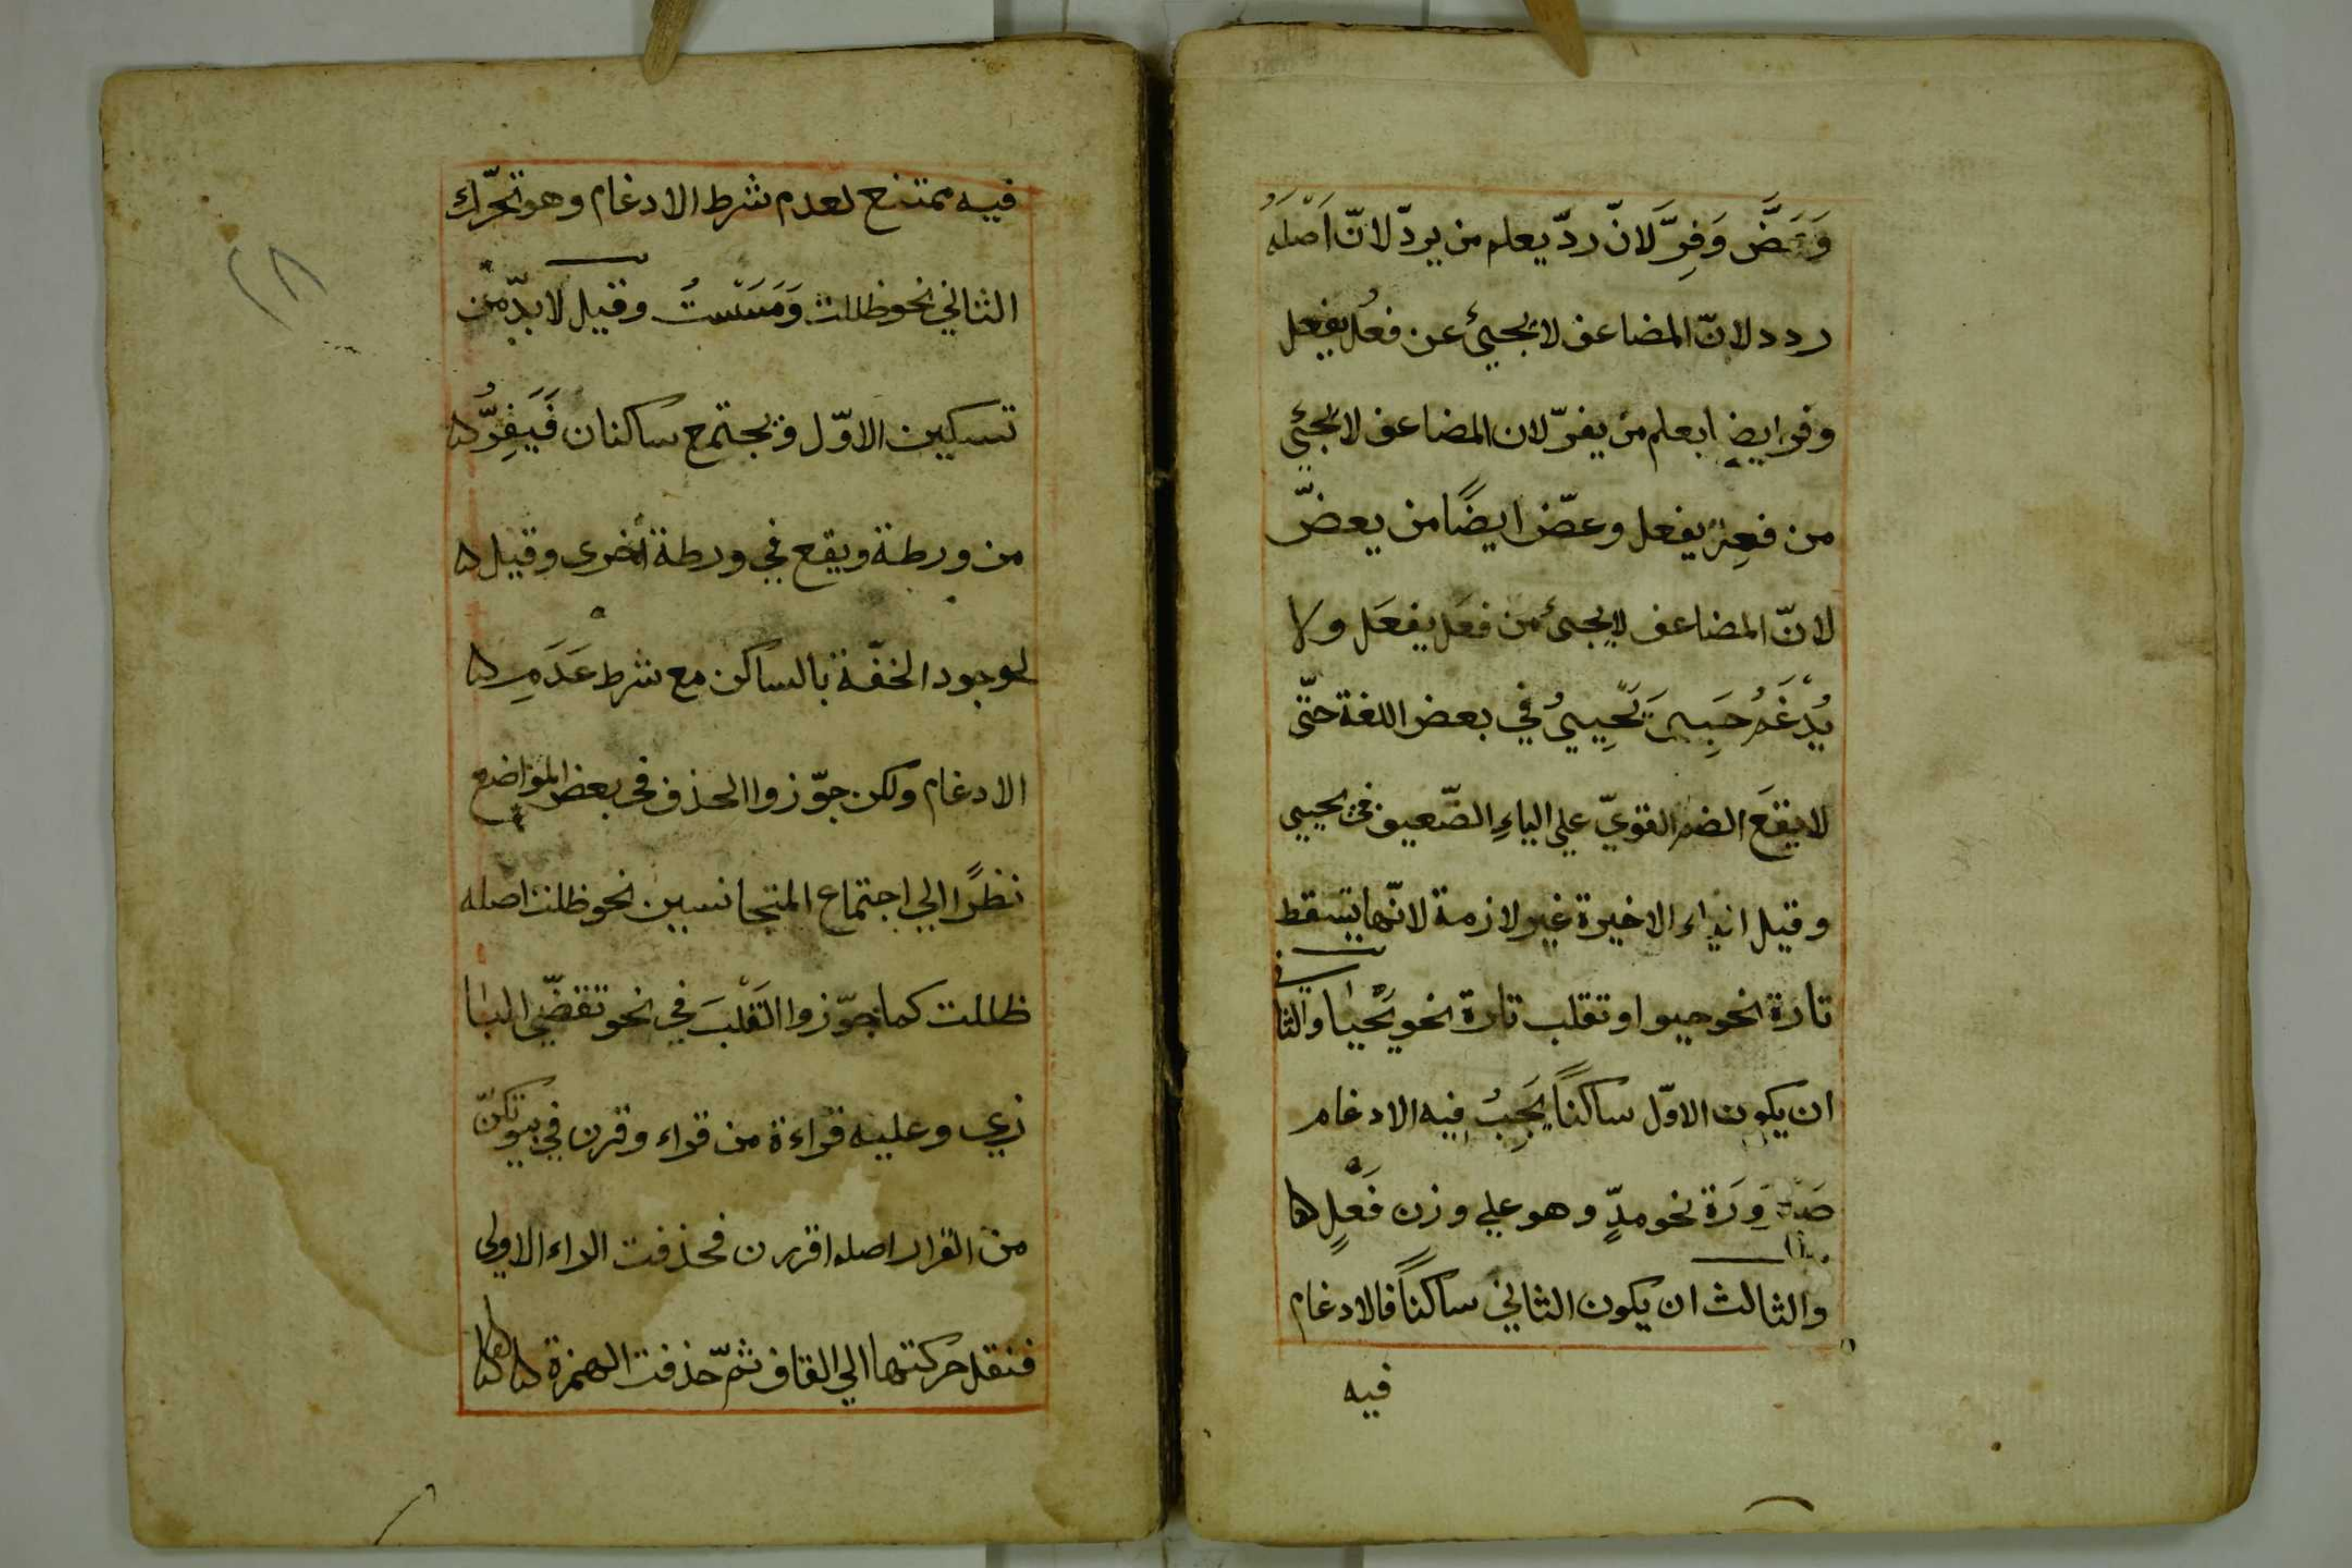 وَعَضَّ وَفِرَّ لانّ ردّ يعلم من يردّ لانّ اَصْلَهُ
ردد لانّ المضاعف لا يجيئ عن فعُل يفعل
وفر ايضا يعلم من يفرّ لان المضاعف لا يجئي
من فعِل يفعل وعضّ ايضًا من يعضّ
لانّ المضاعف لا يجئ من فعَل يفعَل ولا
يُدْغَمُ حَيِىَ يَحْيِيُ في بعض اللغة حتّى
لا يقعَ الضم القويّ علي الياءِ الضّعيف في يحيي
وقيل الياء الاخيرة غير لازمة لانّها تسقط
تارة نحو حيوا وتقلب تارة نحو يَحْيٰا والثانى
ان يكون الاوّل ساكنًا يَجِبُ فيه الادغام
ضَرُورَة نحو مدٍّ وهو علي وزن فَعْلٍ
والثالث ان يكون الثاني ساكنًا فالادغام
فيه
فيه ممتنع لعدم شرط الادغام وهو تحرّك
الثاني نحو ظللت وَمَسَسْتُ وقيل لا بدّ من
تسكين الاوّل فيجتمع ساكنان فَيَفِرُّ
من ورطة ويقع في ورطة أخرى وقيل
لوجود الخفّة بالساكن مع شرط عَدَمِ
الادغام ولكن جوّزوا الحذف في بعض المواضع
نظرًا الي اجتماع المتجانسين نحو ظلت اصله
ظللت كما جوّزوا القَلْبَ في نحو تقضّي البا
زي وعليه قراءة من قراء وقرن في بيوتكنّ
من القرار اصله اقررن فحذفت الراء الاولى
فنقل حركتها الي القاف ثمّ حذفت الهمزة
٢٨